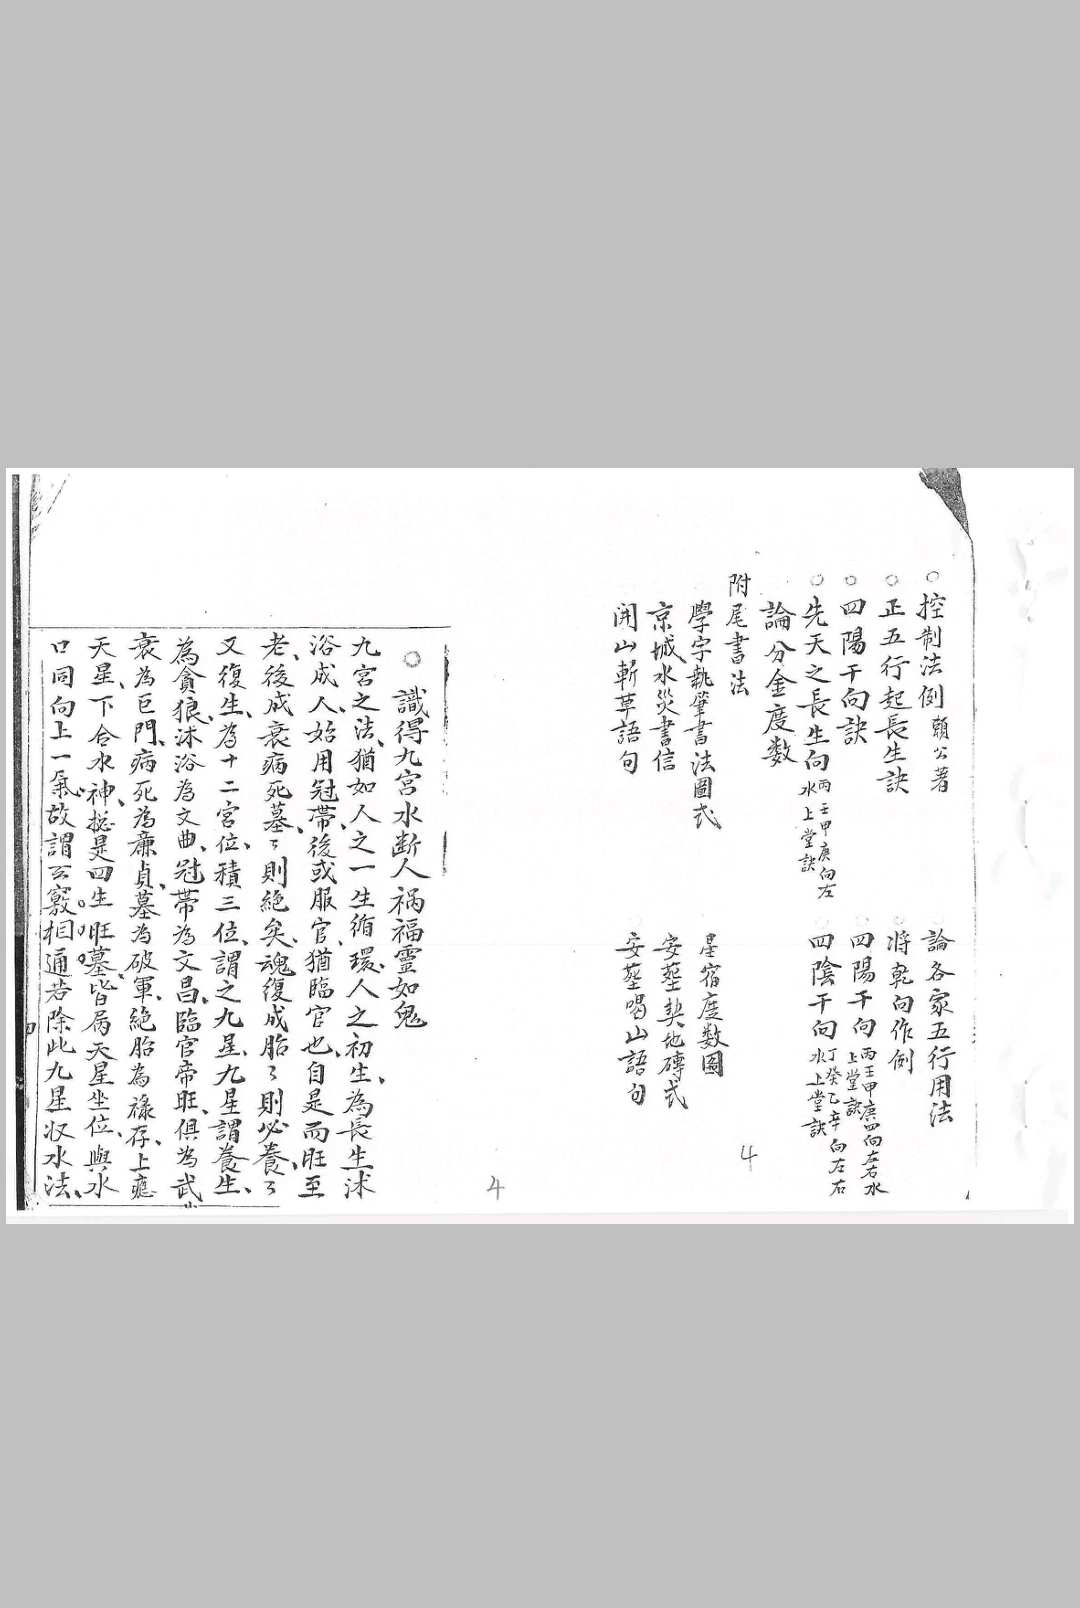 ○控制法例 賴公著
論各家五行用法
○正五行起長生訣
將乾向作例
○四陽干向訣
四陽干向 丙壬甲庚四向左右水
上堂訣
○先天之長生向 丙壬甲庚向左
水上堂訣
四陰干向 丁癸乙辛向左右
水上堂訣
論分金度数
附尾書法
學字執筆書法圖式
星宿度数圖
京城水災書信
安塟契地磚式
開山斬草語句
安塟喝山語句
4
4
○識得九宮水断人禍福靈如鬼
九宮之法、猶如人之一生循環、人之初生、為長生沭
浴成人、始用冠帶、後或服官、猶臨官也、自是而旺至
老、後成衰病死墓、々則絕矣、魂復成胎、々則必養、々
又復生、為十二宮位、積三位、謂之九星、九星謂養生、
為貪狼、沭浴為文曲、冠帶為文昌、臨官帝旺、俱為武
衰為巨門、病死為廉貞、墓為破軍、絕胎為祿存、上應
天星、下合水神、捴是四生旺墓、皆屬天星坐位、與水
口同向上一氣、故謂玄竅相通、若除此九星収水法、